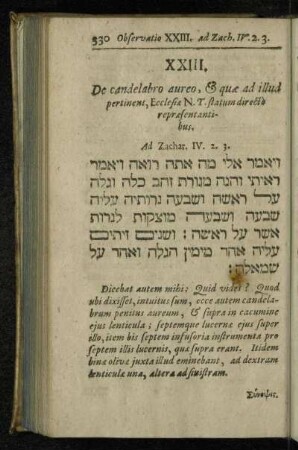 530 Observatio XXIII. ad Zach. IV. 2. 3.
XXIII.
De candelabro aureo, & quæ ad illud
pertinent, Ecclesiæ N. T. statum directò
repræsentanti-
bus.
Ad Zachar. IV. 2. 3.
ויאמר אלי מה אתה רואה ויאמר
ראיתי והנה מנורת זהב כלה וגלה
על ראשה ושבעה נרותיה עליה
שבעה ושבעה מוצקות לנרות
אשר על ראשה : ושנים זיתים
עליה אחד מימין הגלה ואחד על
שמאלה :
Dicebat autem mihi: Quid vides? Quod
ubi dixisset, intuitus sum, ecce autem candela-
brum penitus aureum, & supra in cacumine
ejus lenticula; septemque lucernæ ejus super
illo, item bis septem infusoria instrumenta pro
septem illis lucernis, quæ supra erant. Itidem
binæ olivæ juxta illud eminebant, ad dextram
lenticulæ una, altera ad sinistram.
Σύνοψις.